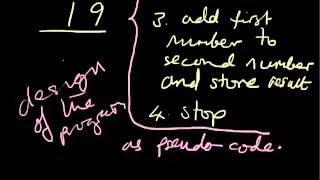 19
3. add first
number to
second number
and store result
4. stop
design
of the
program
as pseudo code.